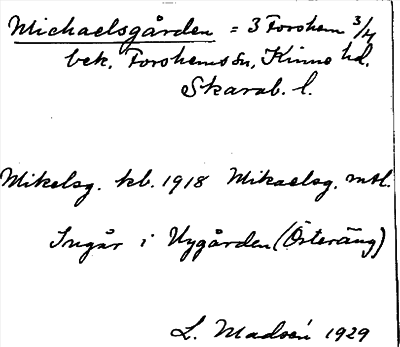 Michaelsgården = 3 Forshem 3/4
bek. Forshems sn, Kinne hd.
Skarab. l.
Mikelsg. kb. 1918 Mikaelsg. mtl.
Ingår i Nygården (Österäng)
L. Madsén 1929